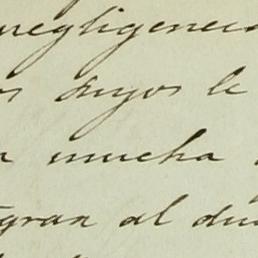 negligenci
os suyos le
n mucha
gran al du